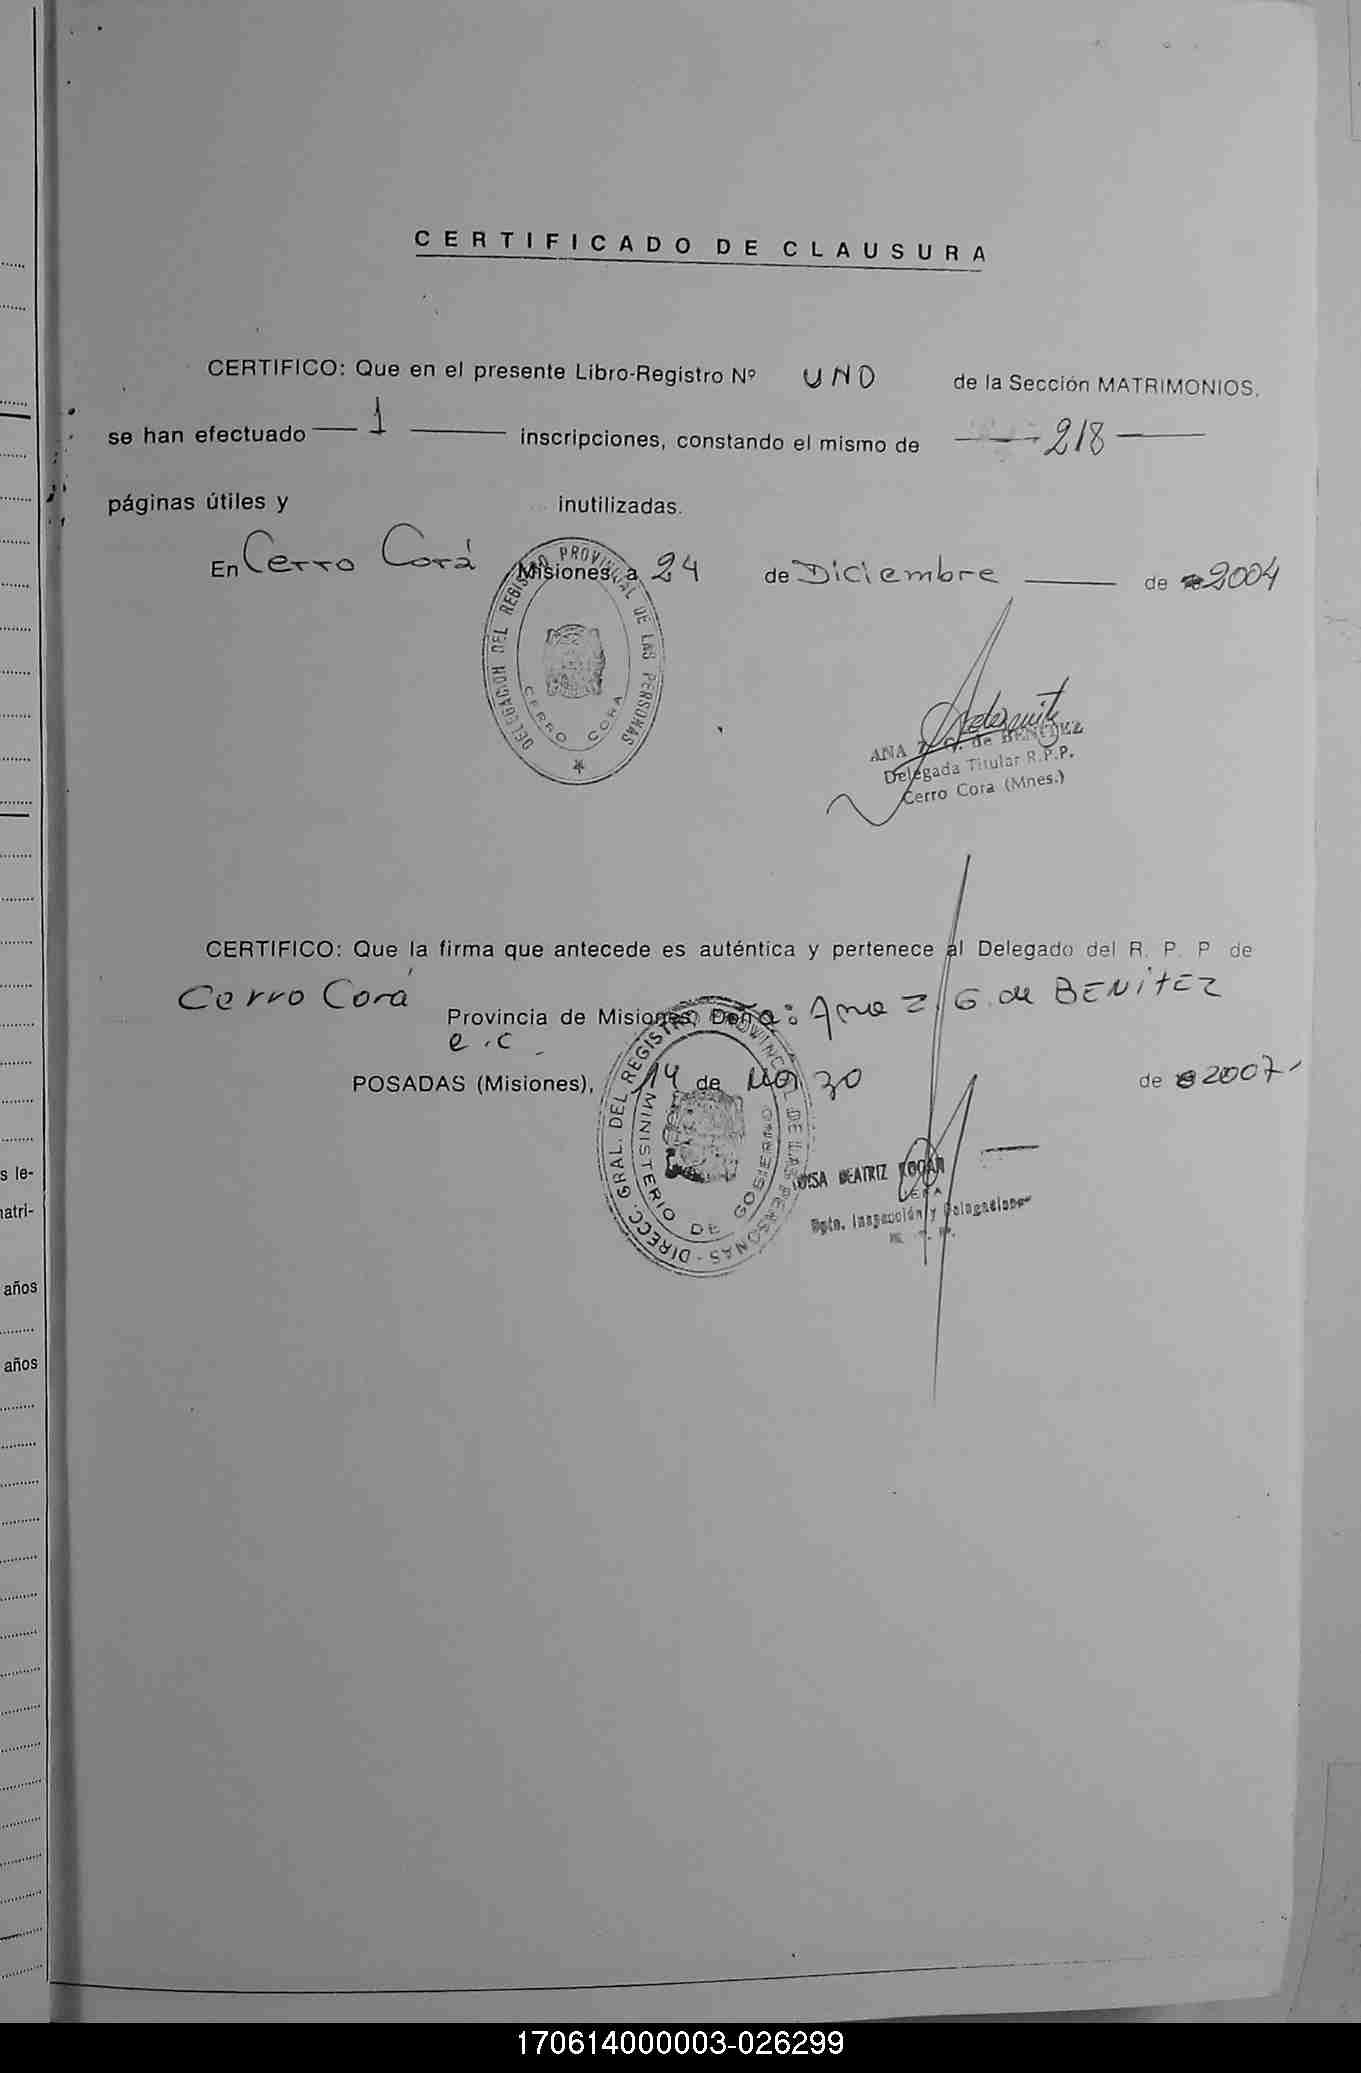 CERTIFICADO DE CLAUSURA
CERTIFICO: Que en el presente Libro-Registro Nº UNO de la Sección MATRIMONIOS,
se han efectuado — 1 — inscripciones, constando el mismo de — 218 —
páginas útiles y inutilizadas.
En Cerro Corá Misiones, a 24 de Diciembre — de 2004
DELEGACION DEL REGISTRO PROVINCIAL DE LAS PERSONAS
CERRO CORA
ANA Z. G. de BENITEZ
Delegada Titular R.P.P.
Cerro Cora (Mnes.)
CERTIFICO: Que la firma que antecede es auténtica y pertenece al Delegado del R. P. P de
Cerro Corá Provincia de Misiones, Doña: Ana Z. G. de BENITEZ
e.c
POSADAS (Misiones), 14 de Marzo de 2007
DIRECC. GRAL. DEL REGISTRO PROVINCIAL DE LAS PERSONAS -
MINISTERIO DE GOBIERNO
LUISA BEATRIZ
JEFA
Dpto. Inspección y Delegaciones
s le-
atri-
años
años
170614000003-026299